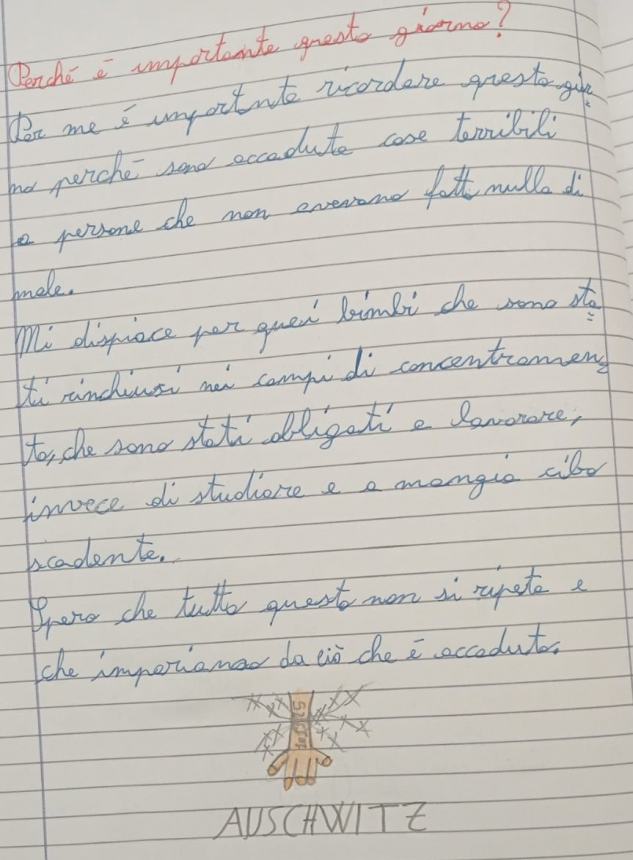 Perché è importante questo giorno?
Per me è importnte ricordare questo gior
no perché sono accadute cose terribili
a persone che non avevano fatto nulla di
male.
Mi dispiace per quei bimbi che sono sta
ti rinchiusi nei campi di concentramen
to, che sono stati obligati a lavorare,
invece di studiare e a mangia cibo
scadente.
Spero che tutto questo non si ripeta e
che impariamo da ciò che è accaduto.
AUSCHWITZ